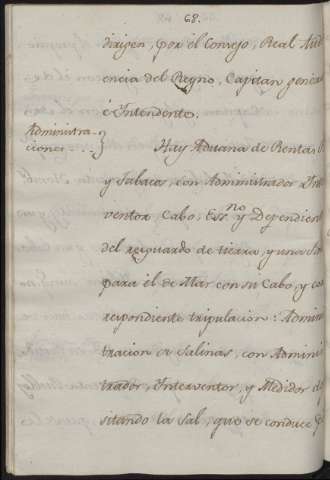 68.
dirigen, por el Consejo, Real Aud
encia del Reyno, Capitan genera
è Intendente.
Administra-
ciones...
Hay Aduana de Rentas
y Tabacos, con Administrador Int
ventor, Cabo, Essno y Dependien
del resguardo de tierra, y una
para él de Mar con su Cabo, y co
respondiente tripulacion: Admini
tracion de Salinas, con Admini
trador, Interventor, y Medidor
sitando la Sal, que se conduce p